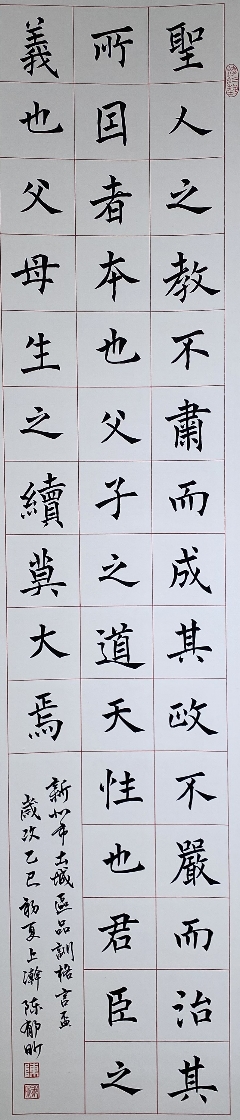 聖人之教不肅而成其政不嚴而治其
所因者本也父子之道天性也君臣之
義也父母生之續莫大焉
新北市土城區品訓格言盃
歲次乙巳初夏上澣陳郁昀